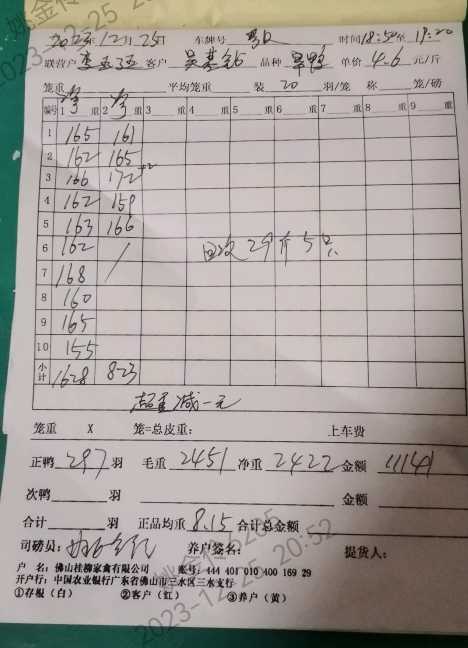 2023年12月25日 车牌号 时间18:50至19:20
联营户 客户 品种 单价4.6元/斤
笼重 平均笼重 装20羽/笼 称 笼/磅
编号 1 重 2 重 3 重 4 重 5 重 6 重 7 重 8 重 9 重
1 165 161
2 162 165
3 166 172 +2
4 162 159
5 163 166
6 162 / 回次29斤5只
7 168
8 160
9 165
10 155
小计 1628 823
超重减一元
笼重 X 笼=总皮重: 上车费
正鸭297羽 毛重2451 净重2422 金额11141
次鸭 羽 金额
合计 羽 正品均重8.15 合计总金额
司磅员: 养户签名: 提货人:
户 名: 佛山桂柳家禽有限公司 账号: 444 401 010 400 169 29
开户行: 中国农业银行广东省佛山市三水区三水支行
①存根(白) ②客户(红) ③养户(黄)
2023-12-25 20:52